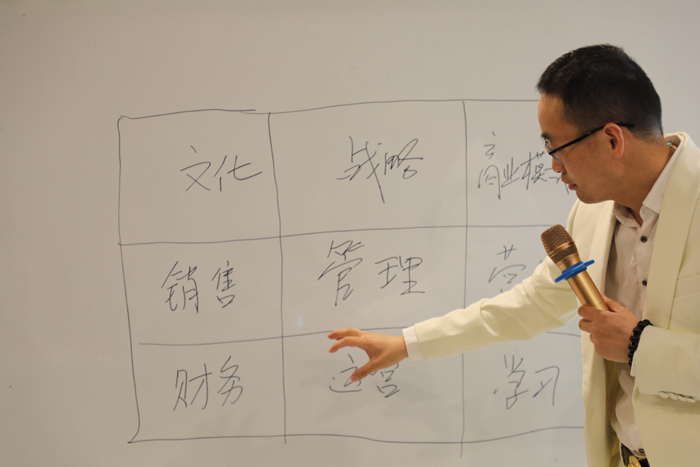 文化 战略 商业模
销售 管理 营
财务 运营 学习